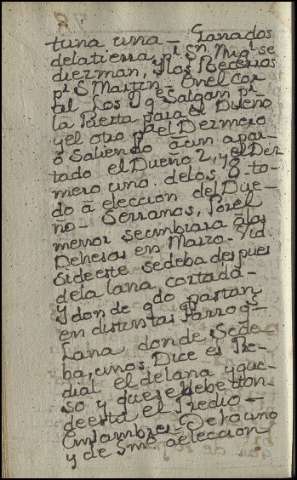 tuna una - Ganados
dela tierra, pr Sn Migl se
diezman, y los Becerros
pr S Martin - En el Cor
ral los 9 Salgan pr
la Puerta para el Dueño
y el otro pa el Dezmero
o Saliendo a un apar-
tado el Dueño 2, y el Dez
mero uno. de los, 8 to-
do a eleccion del Due-
ño - Serranos, Por el
menor secumbrara alas
Dehesas en Marzo -
side este sedeba despues
dela lana cortada -
Y donde qdo pastan
en distintas Parroqs -
Lana donde, se de-
ba, unos, Dice es Pre-
dial el de lana y que-
so y que se debe don-
de esta el Predio -
Enxambres - De 10 uno
y de a eleccion